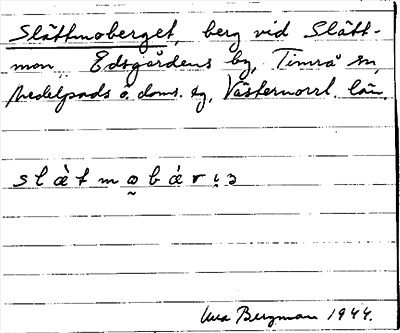 Slättmoberget, berg vid Slätt-
mon, Edsgårdens by, Timrå sn,
Medelpads ö. doms. sg, Västernorrl. län.
slæ̀tmo̰bǽrı̣ɔ
Bergman 1944.